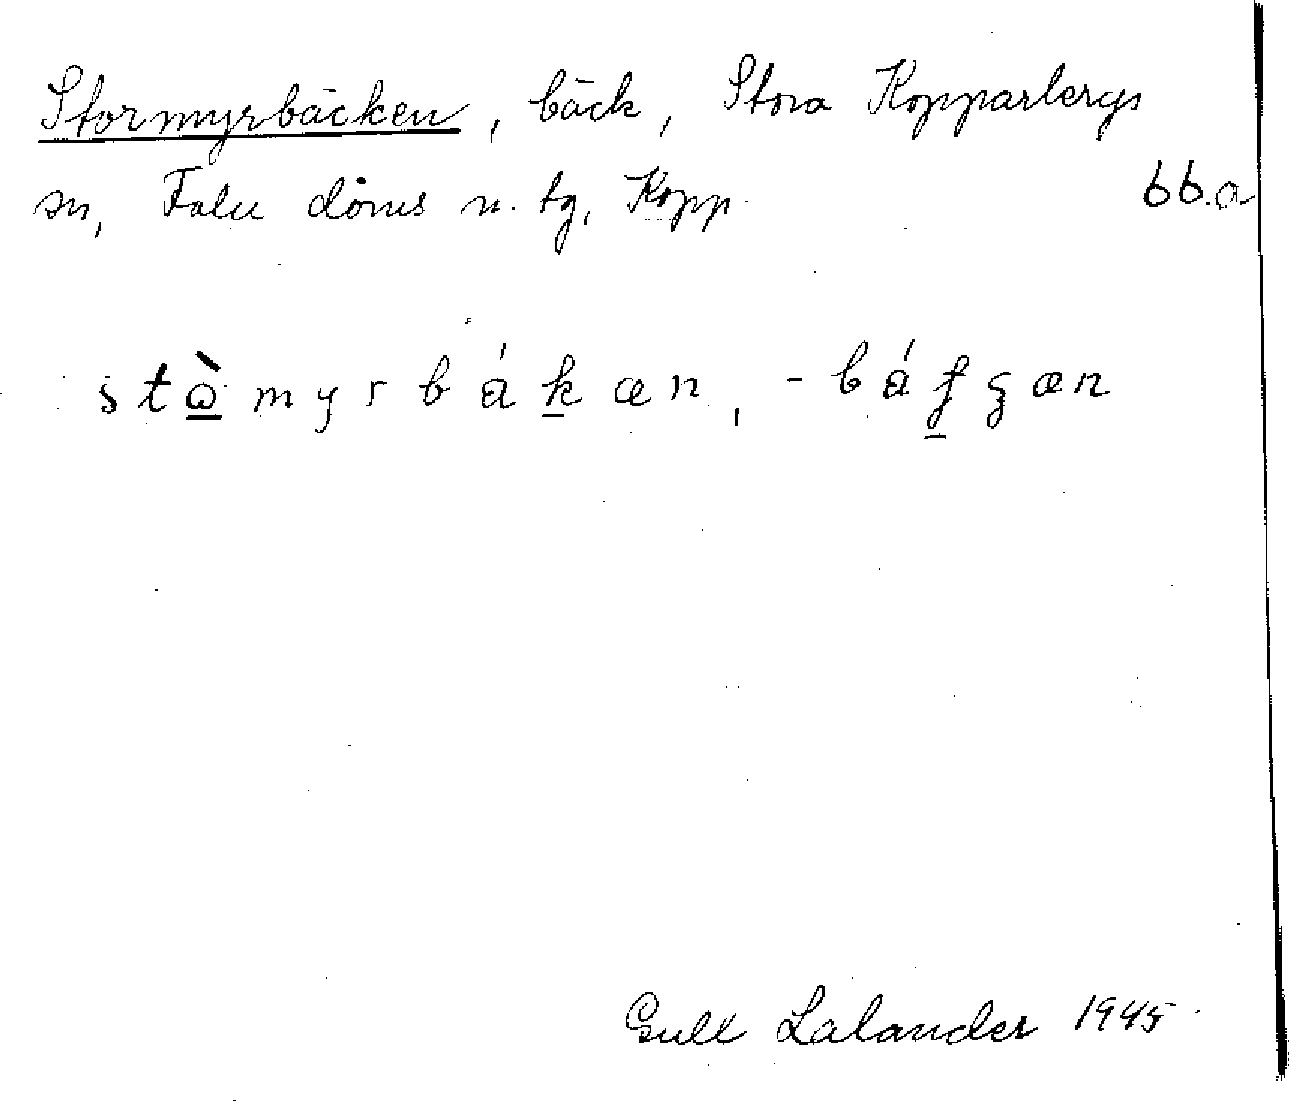 Stormyrbäcken, bäck, Stora Kopparbergs
sn, Falu döms n. tg, Kopp. 66.a
stòmyrbákæn, -báƒʒæn
Gull Lalander 1945